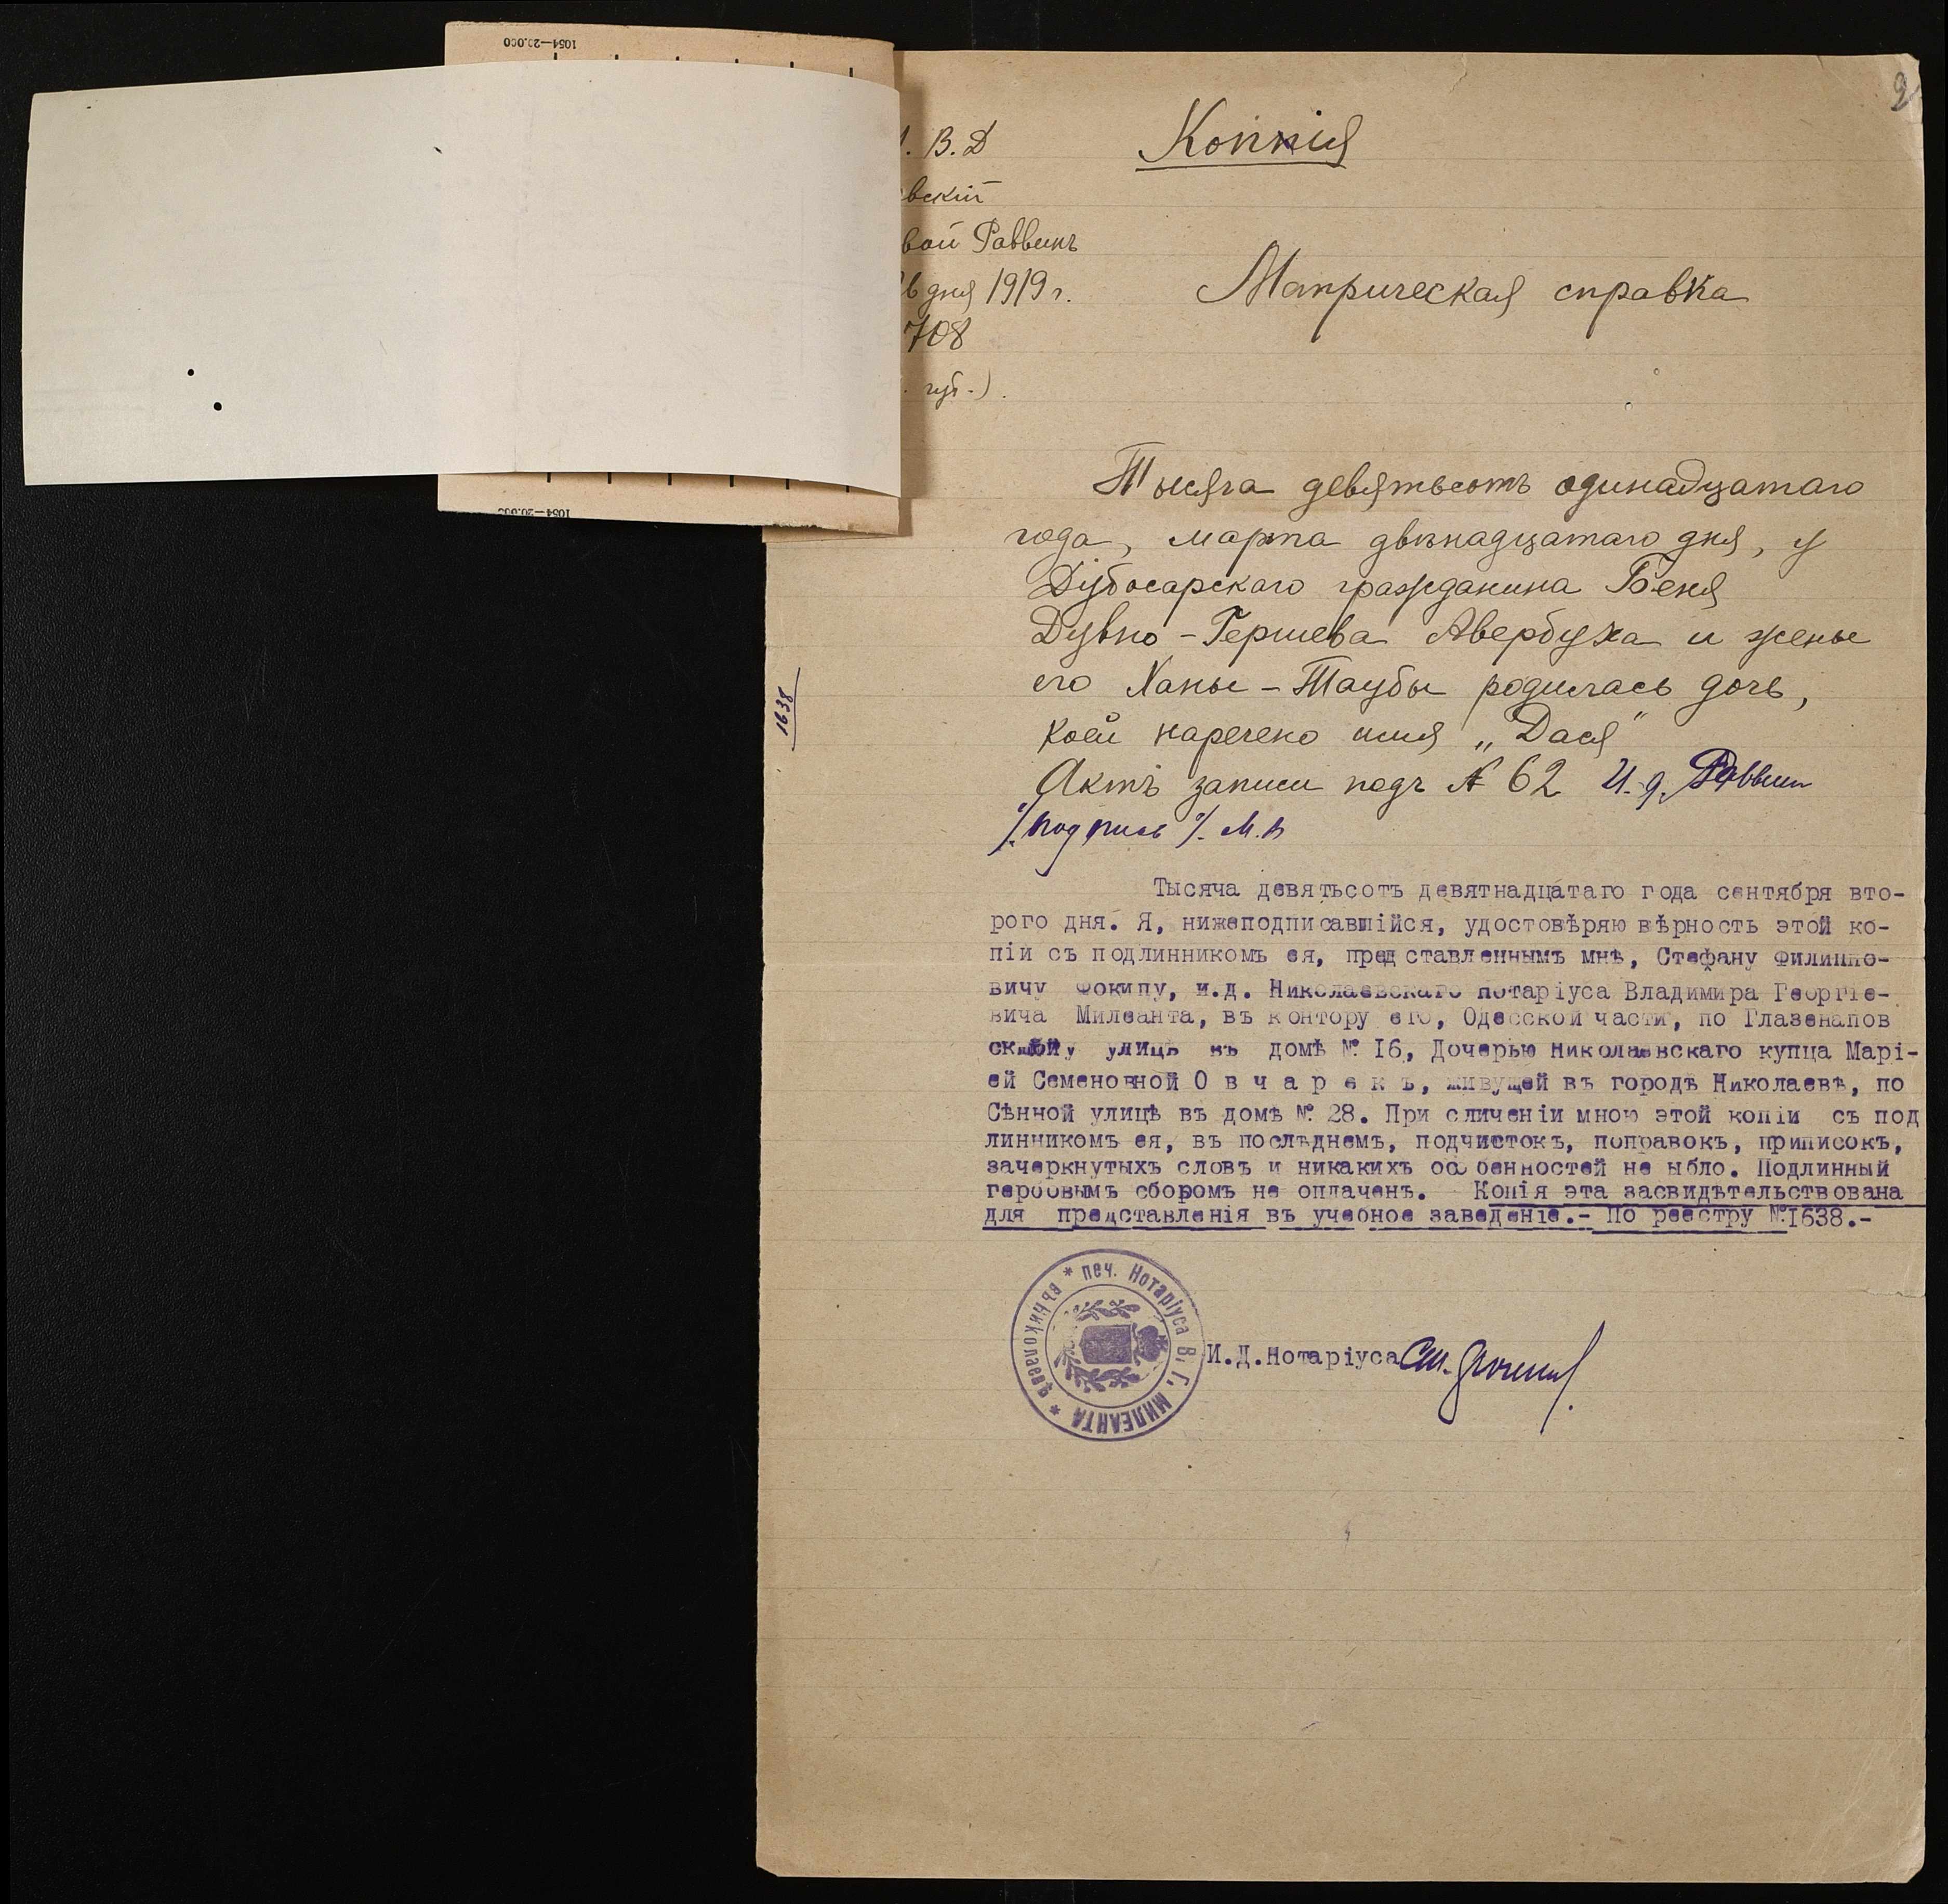 1054—20.000
2
В. Д
Копія
вскій
вой Раввинъ
дня 1919 г.
Матрическая справка
708
губ.).
Тысяча девятьсотъ одинадцатаго
года, марта двѣнадцатаго дня, у
Дубосарскаго гражданина Беня
Дувно-Гершева Авербуха и жены
его Ханы-Таубы родилась дочь,
коей наречено имя „Дася"
Актъ записи подъ № 62 И.д. Раввин
/.подпись/. М.П
1638
Тысяча девятьсотъ девятнадцатаго года сентября вто-
рого дня. Я, нижеподписавшійся, удостовѣряю вѣрность этой ко-
піи съ подлинникомъ ея, представленнымъ мнѣ, Стефану Филиппо-
вичу Фокину, и.д. Николаевскаго нотаріуса Владимира Георгіе-
вича Милеанта, въ контору его, Одесской части, по Глазенапов
ской улицѣ въ домѣ № 16, Дочерью Николаевскаго купца Марі-
ей Семеновной О в ч а р е к ъ, живущей въ городѣ Николаевѣ, по
Сѣнной улицѣ въ домѣ № 28. При сличеніи мною этой копіи съ под
линникомъ ея, въ послѣднемъ, подчистокъ, поправокъ, приписокъ,
зачеркнутыхъ словъ и никакихъ особенностей не ыбло. Подлинный
гербовымъ сборомъ не оплаченъ. Копія эта засвидѣтельствована
для представленія въ учебное заведеніе.- По реестру №1638.-
* печ. Нотаріуса В. Г. МИЛЕАНТА * въ Николаевѣ
И.Д.Нотаріуса Ст. Фокин
1054—20.000